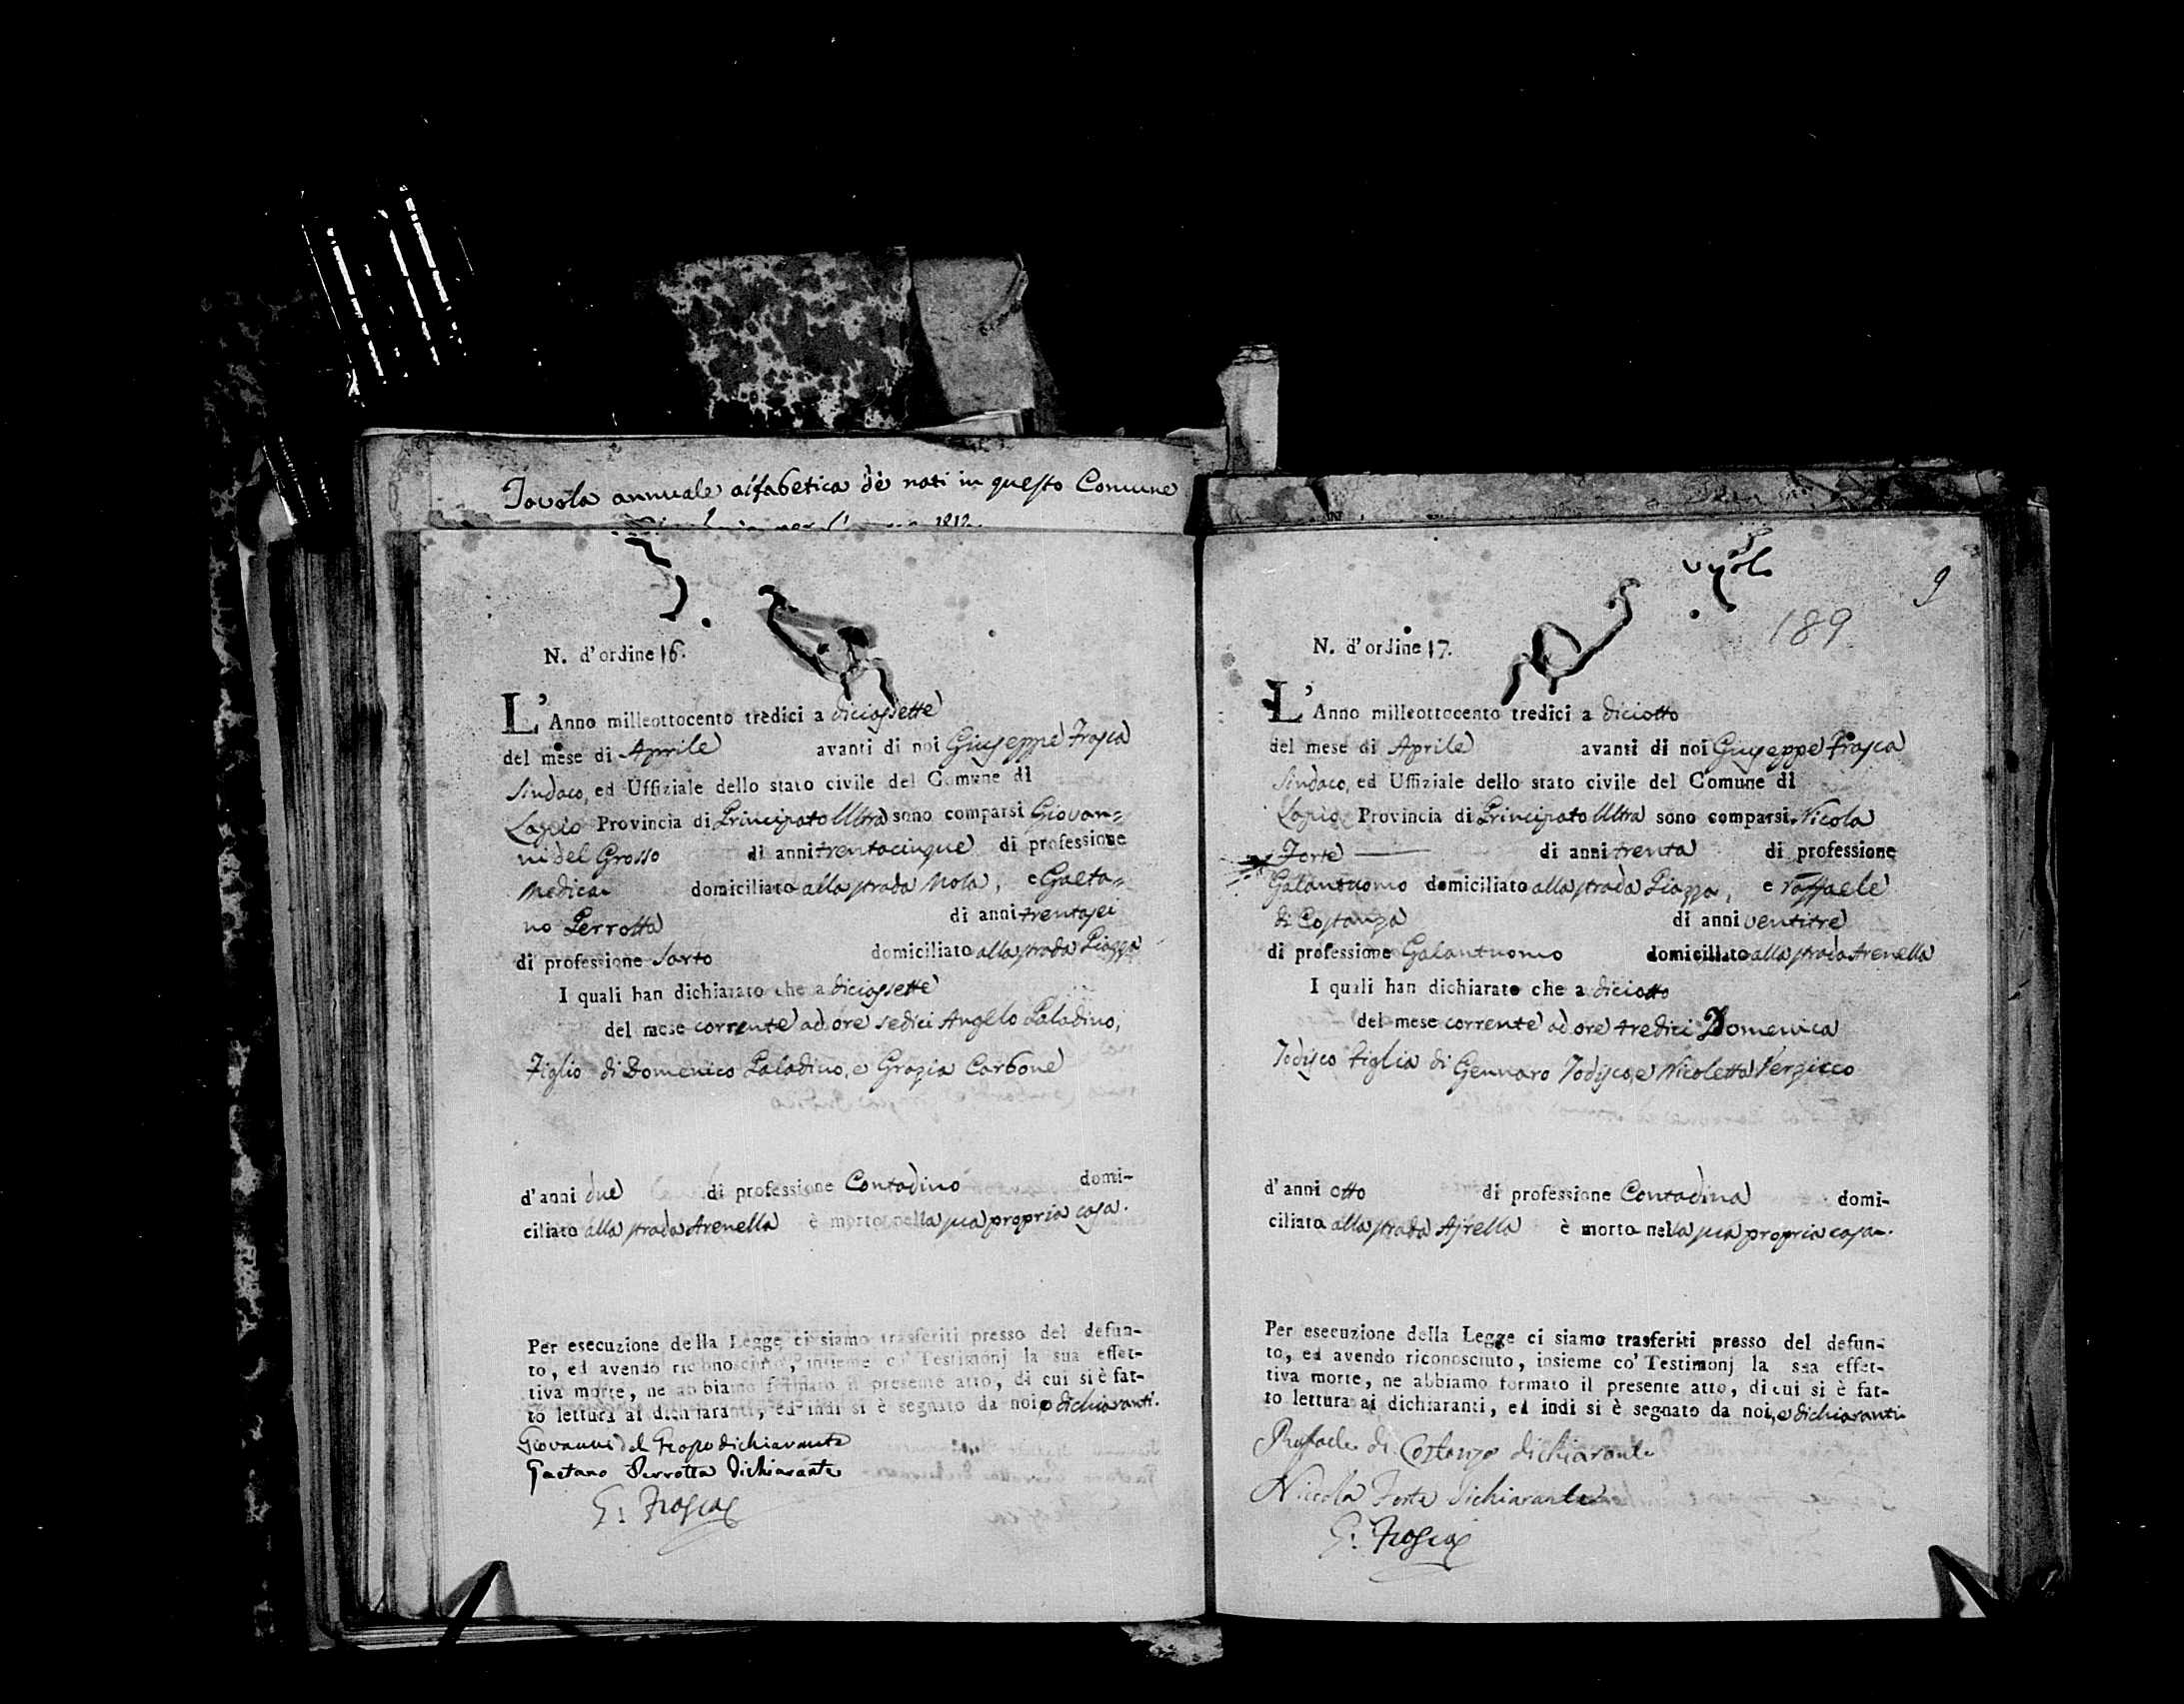 Tavola annuale alfabetica de nati in questo Comune
per l'anno 1812.
N. d'ordine 16.
L'Anno milleottocento tredici a diciassette
del mese di Aprile avanti di noi Giuseppe Frasca
Sindaco, ed Uffiziale dello stato civile del Comune di
Lapio Provincia di Principato Ultra sono comparsi Giovan=
ni del Grosso di anni trentacinque di professione
Medica domiciliato alla strada Mola, e Gaeta=
no Perrotta di anni trentasei
di professione Sarto domiciliato alla strada Piazza
I quali han dichiarato che a diciassette
del mese corrente ad ore sedici Angelo Paladino,
Figlio di Domenico Paladino, e Grazia Carbone
d'anni due di professione Contadino domi-
ciliato alla strada Arenella è morto nella sua propria casa.
Per esecuzione della Legge ci siamo trasferiti presso del defun-
to, ed avendo riconosciuto, insieme co' Testimonj la sua effet-
tiva morte, ne abbiamo formato il presente atto, di cui si è fat-
to lettura ai dichiaranti, ed indi si è segnato da noi e dichiaranti.
Giovanni del Grosso dichiarante
Gaetano Perrotta dichiarante
G: Frasca
9
189
N. d'ordine 17.
L'Anno milleottocento tredici a diciotto
del mese di Aprile avanti di noi Giuseppe Frasca
Sindaco, ed Uffiziale dello stato civile del Comune di
Lapio Provincia di Principato Ultra sono comparsi Nicola
Forte di anni trenta di professione
Galantuomo domiciliato alla strada Piazza, e raffaele
di Costanza di anni ventitre
di professione Galantuomo domiciliato alla strada Arenella
I quali han dichiarato che a diciotto
del mese corrente ad ore tredici Domenica
Todisco figlia di Gennaro Todisco, e Nicoletta Verzicco
d'anni otto di professione Contadina domi-
ciliato alla strada Ajrella è morto nella sua propria casa.
Per esecuzione della Legge ci siamo trasferiti presso del defun-
to, ed avendo riconosciuto, insieme co' Testimonj la sua effet-
tiva morte, ne abbiamo formato il presente atto, di cui si è fat-
to lettura ai dichiaranti, ed indi si è segnato da noi, e dichiaranti
Raffaele di Costanzo dichiarante
Nicola Forte dichiarante
G: Frasca